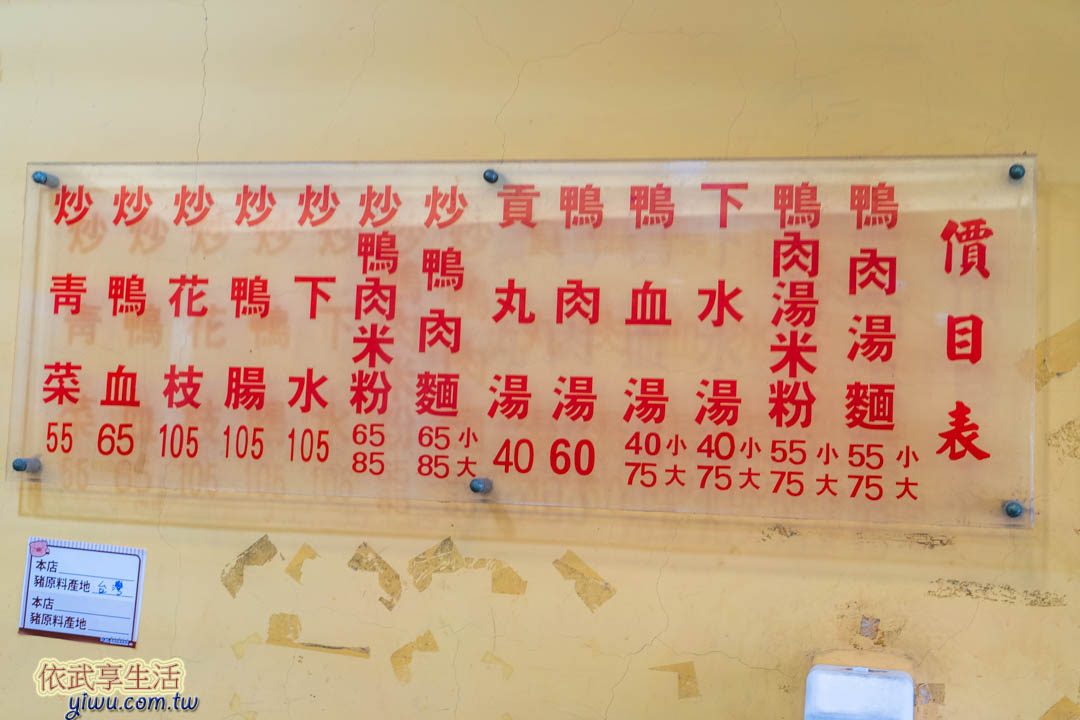 價目表
鴨肉湯麵 55小 75大
鴨肉湯米粉 55小 75大
下水湯 40小 75大
鴨血湯 40小 75大
鴨肉湯 60
貢丸湯 40
炒鴨肉麵 65小 85大
炒鴨肉米粉 65 85
炒下水 105
炒鴨腸 105
炒花枝 105
炒鴨血 65
炒青菜 55
本店
豬原料產地 台灣
本店
豬原料產地
依武享生活
yiwu.com.tw